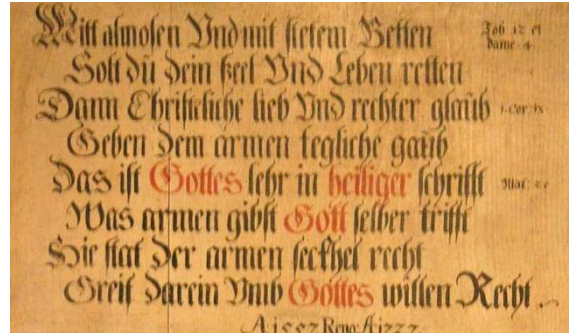 Mitt almosen Vnd mit stetem Betten
Solt dŭ dein seel Vnd Leben retten
Dann Christeliche lieb Vnd rechter glaŭb
Geben dem armen tegliche gaŭb
Das ist Gottes lehr in heiliger schrifft
Was armen gibst Gott selber trifft
Hie stat der armen seckhel recht
Greif darein Vmb Gottes willen Recht